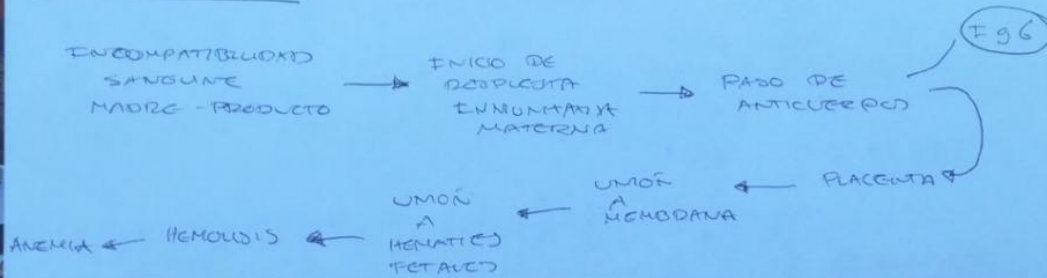 INCOMPATIBILIDAD
SANGUINE
MADRE - PRODUCTO
INICIO DE
RESPUESTA
INMUNITARIA
MATERNA
PASO DE
ANTICUERPOS
IgG
PLACENTA
UNIÓN
A
MEMBRANA
UNIÓN
A
HEMATIES
FETALES
HEMOLISIS
ANEMIA